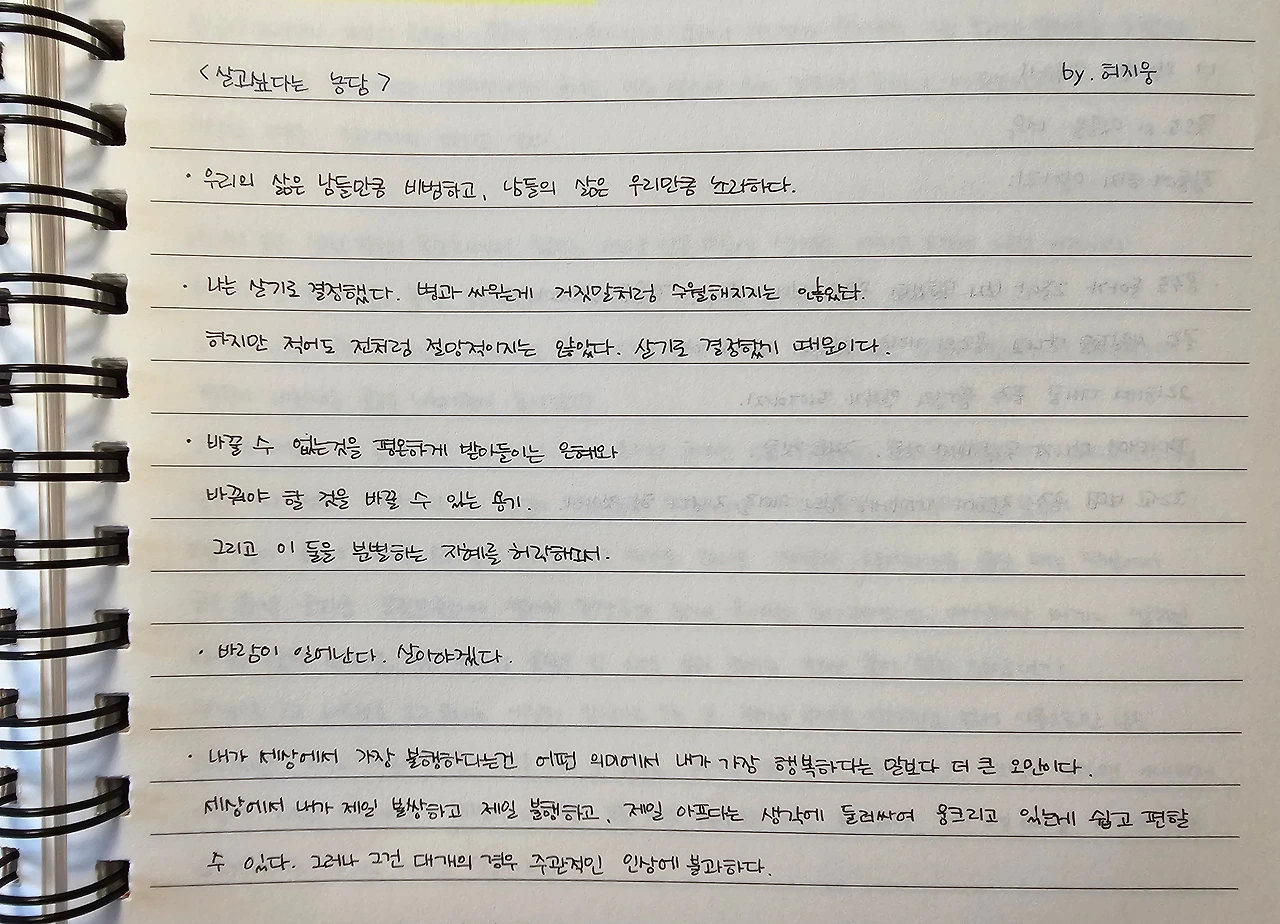 <살고싶다는 농담> by. 허지웅
· 우리의 삶은 남들만큼 비범하고, 남들의 삶은 우리만큼 초라하다.
· 나는 살기로 결정했다. 병과 싸우는게 거짓말처럼 수월해지지는 않았다.
하지만 적어도 전처럼 절망적이지는 않았다. 살기로 결정했기 때문이다.
· 바꿀 수 없는것을 평온하게 받아들이는 은혜와
바꿔야 할 것을 바꿀 수 있는 용기.
그리고 이 둘을 분별하는 지혜를 허락해소서.
· 바람이 일어난다. 살아야겠다.
· 내가 세상에서 가장 불행하다는건 어떤 의미에서 내가 가장 행복하다는 말보다 더 큰 오만이다.
세상에서 내가 제일 불쌍하고 제일 불행하고, 제일 아프다는 생각에 둘러싸여 웅크리고 있는게 쉽고 편할
수 있다. 그러나 그건 대개의 경우 주관적인 인상에 불과하다.